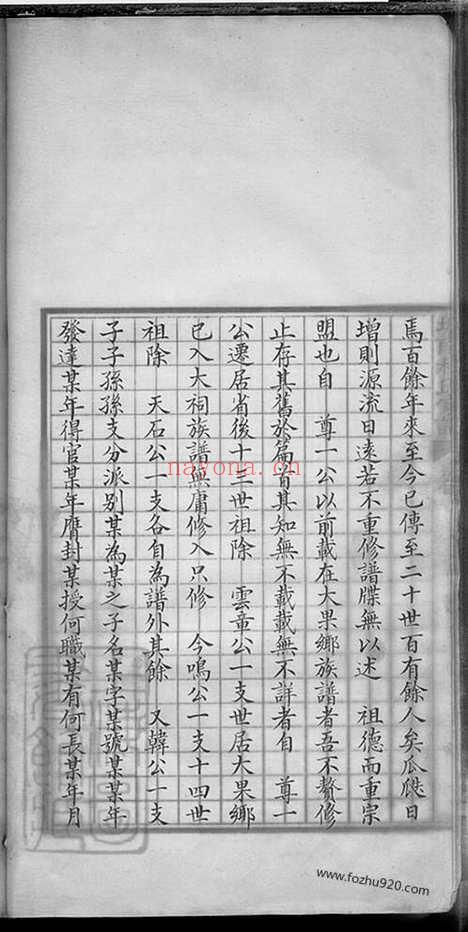 焉百餘年來至今已傳至二十世百有餘人矣瓜瓞日
增則源流日遠若不重修譜牒無以述　祖德而重宗
盟也自　尊一公以前載在大果鄉族譜者吾不贅修
止存其舊於篇首其知無不載載無不詳者自　尊一
公遷居省後十三世祖除　雲童公一支世居大果鄉
已入大祠族譜無庸修入只修　今鳴公一支十四世
祖除　天石公一支各自為譜外其餘　又韓公一支
子子孫孫支分派別某為某之子名某字某號某某年
發達某年得官某年膺封某授何職某有何長某年月
nayona.cn
www.fozhu920.com